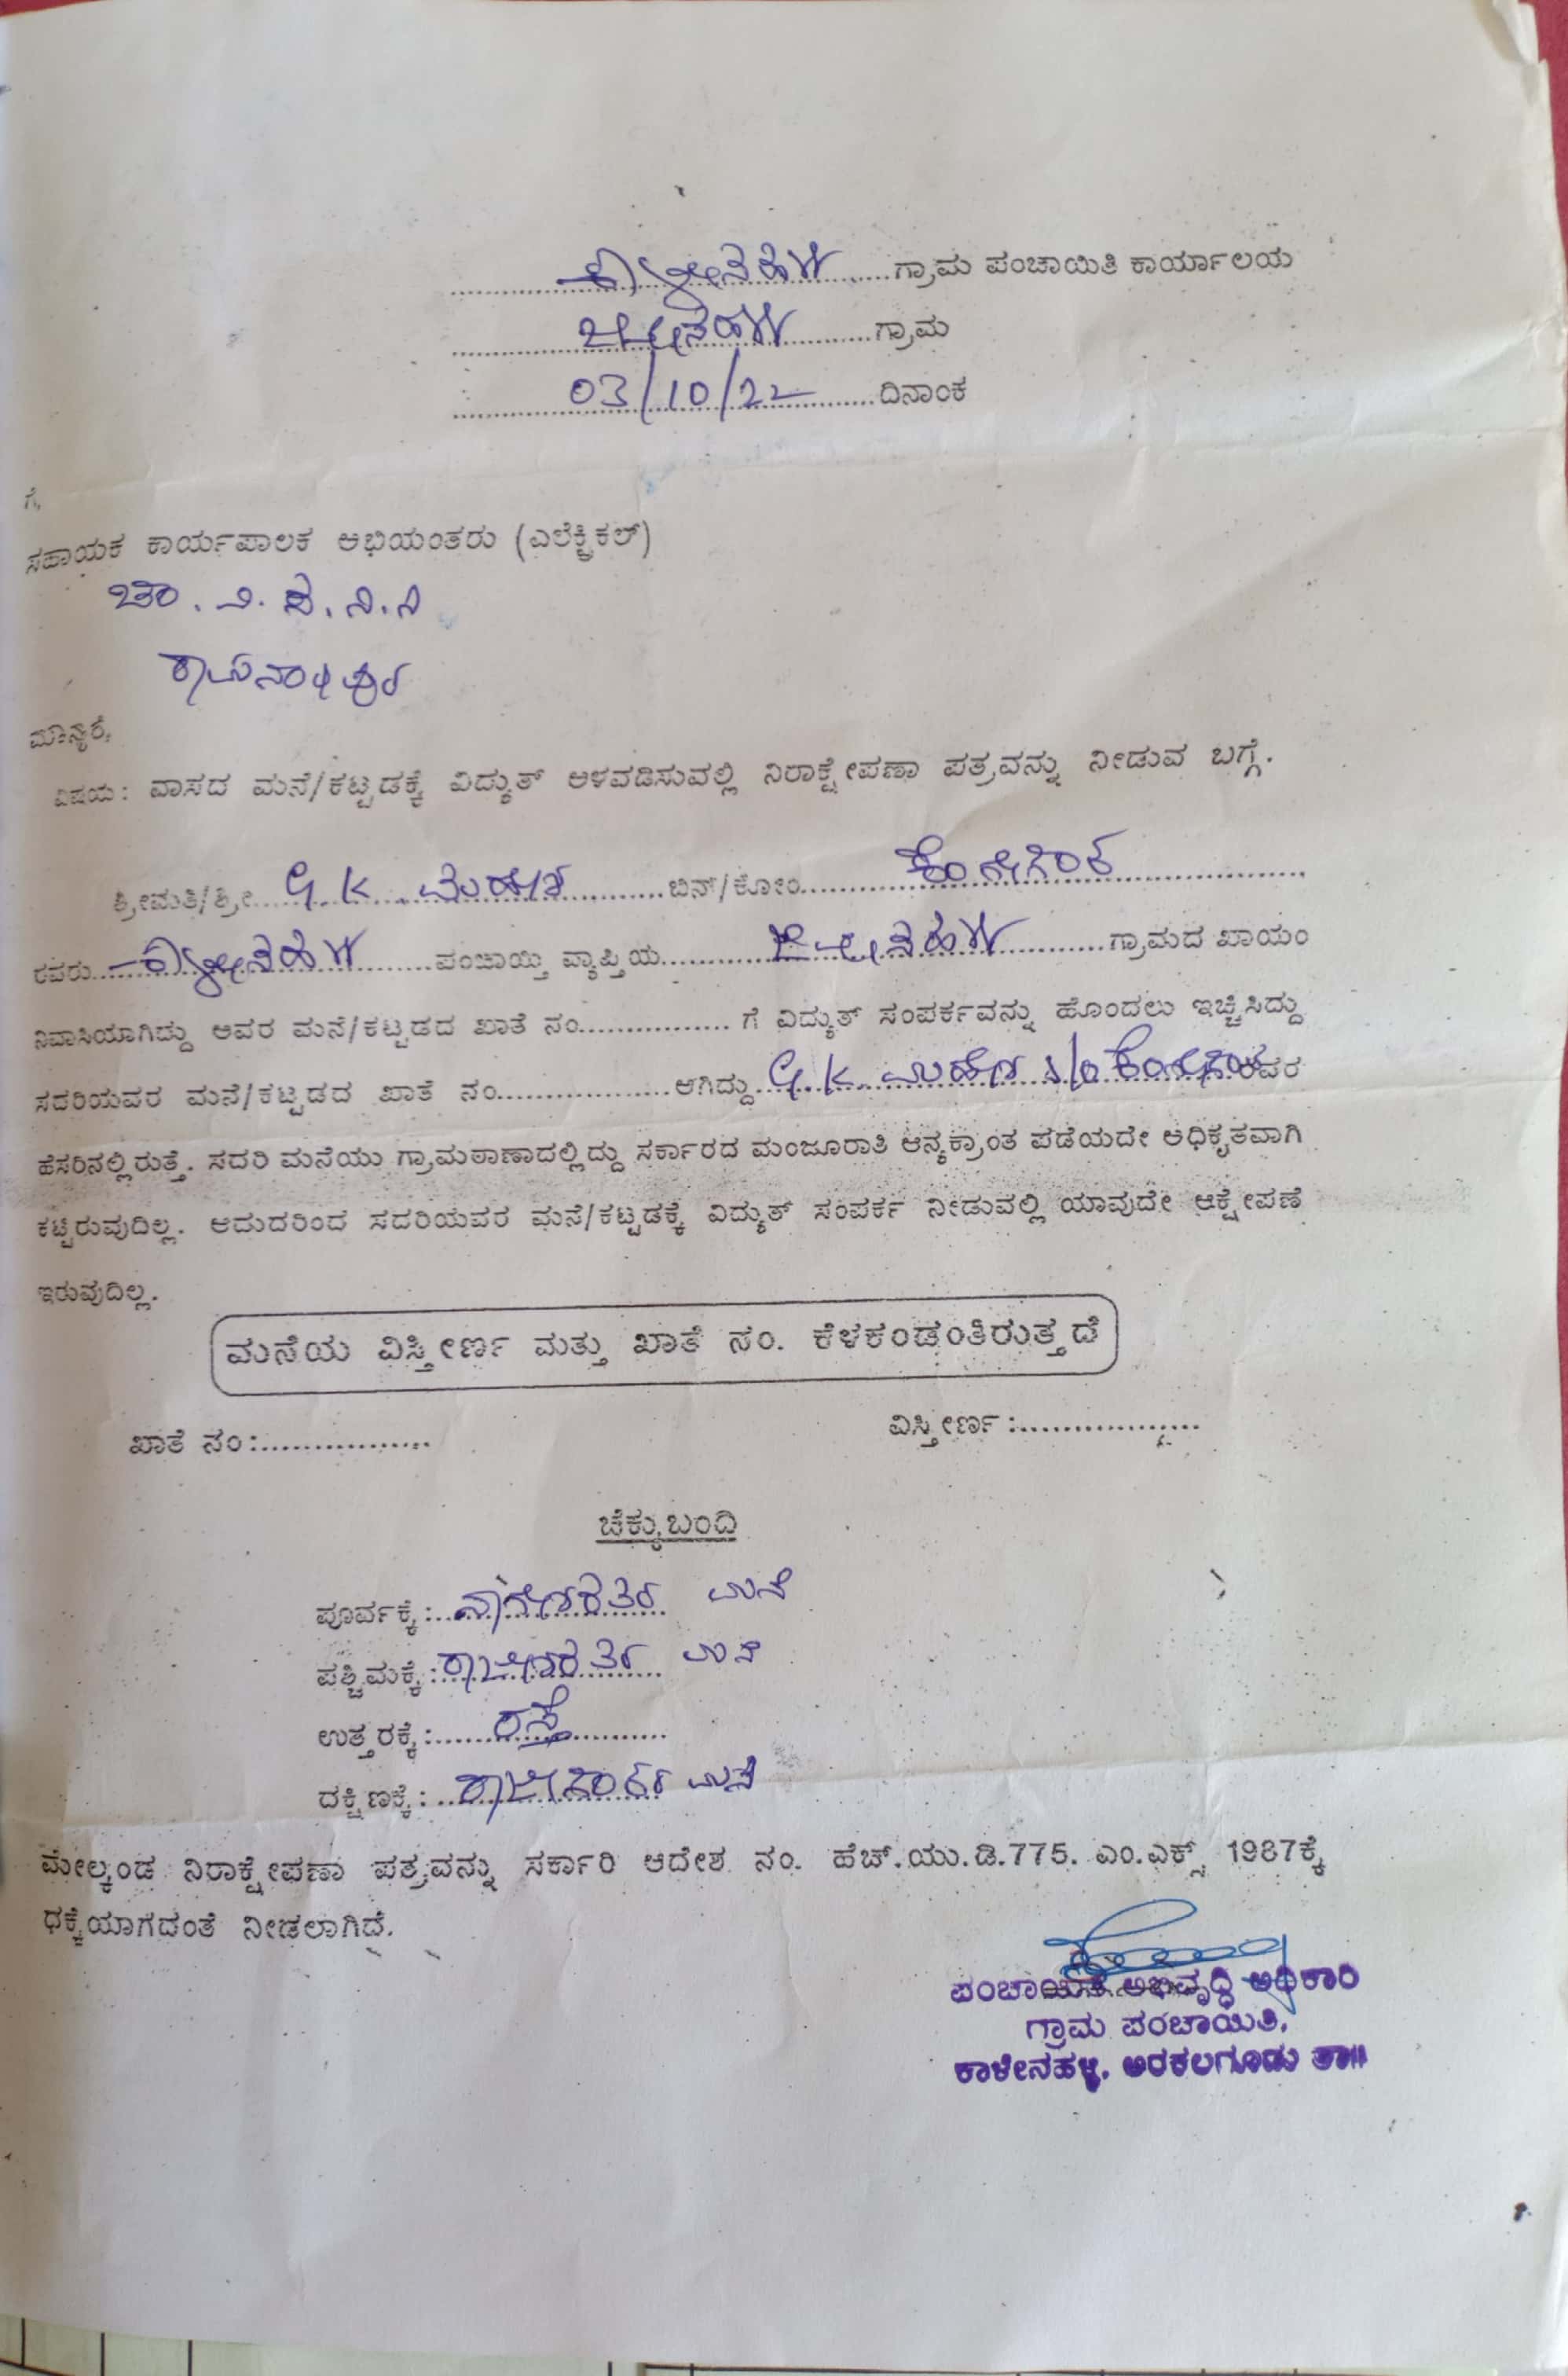 ಕಾಳೇನಹಳ್ಳಿ ಗ್ರಾಮ ಪಂಚಾಯಿತಿ ಕಾರ್ಯಾಲಯ
ಗ್ರಾಮ
03/10/22 ದಿನಾಂಕ
ಗೆ,
ಸಹಾಯಕ ಕಾರ್ಯಪಾಲಕ ಅಭಿಯಂತರು (ಎಲೆಕ್ಟ್ರಿಕಲ್)
ಚಾ. ವಿ. ಸ. ನಿ. ನಿ
ರಾಮನಾಥಪುರ
ಮಾನ್ಯರೆ,
ವಿಷಯ: ವಾಸದ ಮನೆ/ಕಟ್ಟಡಕ್ಕೆ ವಿದ್ಯುತ್ ಅಳವಡಿಸುವಲ್ಲಿ ನಿರಾಕ್ಷೇಪಣಾ ಪತ್ರವನ್ನು ನೀಡುವ ಬಗ್ಗೆ.
ಶ್ರೀಮತಿ/ಶ್ರೀ G.K. ಬಿನ್/ಕೋಂ
ರವರು ಕಾಳೇನಹಳ್ಳಿ ಪಂಚಾಯ್ತಿ ವ್ಯಾಪ್ತಿಯ ಗ್ರಾಮದ ಖಾಯಂ
ನಿವಾಸಿಯಾಗಿದ್ದು ಅವರ ಮನೆ/ಕಟ್ಟಡದ ಖಾತೆ ನಂ................. ಗೆ ವಿದ್ಯುತ್ ಸಂಪರ್ಕವನ್ನು ಹೊಂದಲು ಇಚ್ಚಿಸಿದ್ದು
ಸದರಿಯವರ ಮನೆ/ಕಟ್ಟಡದ ಖಾತೆ ನಂ................... ಆಗಿದ್ದು G.K. S/o ರವರ
ಹೆಸರಿನಲ್ಲಿರುತ್ತೆ. ಸದರಿ ಮನೆಯು ಗ್ರಾಮಠಾಣಾದಲ್ಲಿದ್ದು ಸರ್ಕಾರದ ಮಂಜೂರಾತಿ ಆನ್ಯಕ್ರಾಂತ ಪಡೆಯದೇ ಅಧಿಕೃತವಾಗಿ
ಕಟ್ಟಿರುವುದಿಲ್ಲ. ಆದುದರಿಂದ ಸದರಿಯವರ ಮನೆ/ಕಟ್ಟಡಕ್ಕೆ ವಿದ್ಯುತ್ ಸಂಪರ್ಕ ನೀಡುವಲ್ಲಿ ಯಾವುದೇ ಆಕ್ಷೇಪಣೆ
ಇರುವುದಿಲ್ಲ.
ಮನೆಯ ವಿಸ್ತೀರ್ಣ ಮತ್ತು ಖಾತೆ ನಂ. ಕೆಳಕಂಡಂತಿರುತ್ತದೆ
ಖಾತೆ ನಂ:................. ವಿಸ್ತೀರ್ಣ :..................
ಚೆಕ್ಕುಬಂದಿ
ಪೂರ್ವಕ್ಕೆ : ಮನೆ
ಪಶ್ಚಿಮಕ್ಕೆ : ಮನೆ
ಉತ್ತರಕ್ಕೆ : ರಸ್ತೆ
ದಕ್ಷಿಣಕ್ಕೆ : ಮನೆ
ಮೇಲ್ಕಂಡ ನಿರಾಕ್ಷೇಪಣಾ ಪತ್ರವನ್ನು ಸರ್ಕಾರಿ ಆದೇಶ ನಂ. ಹೆಚ್.ಯು.ಡಿ.775. ಎಂ.ಎಕ್ಸ್ 1987ಕ್ಕೆ
ಧಕ್ಕೆಯಾಗದಂತೆ ನೀಡಲಾಗಿದೆ.
ಪಂಚಾಯಿತಿ ಅಭಿವೃದ್ಧಿ ಅಧಿಕಾರಿ
ಗ್ರಾಮ ಪಂಚಾಯಿತಿ,
ಕಾಳೇನಹಳ್ಳಿ, ಅರಕಲಗೂಡು ತಾ॥